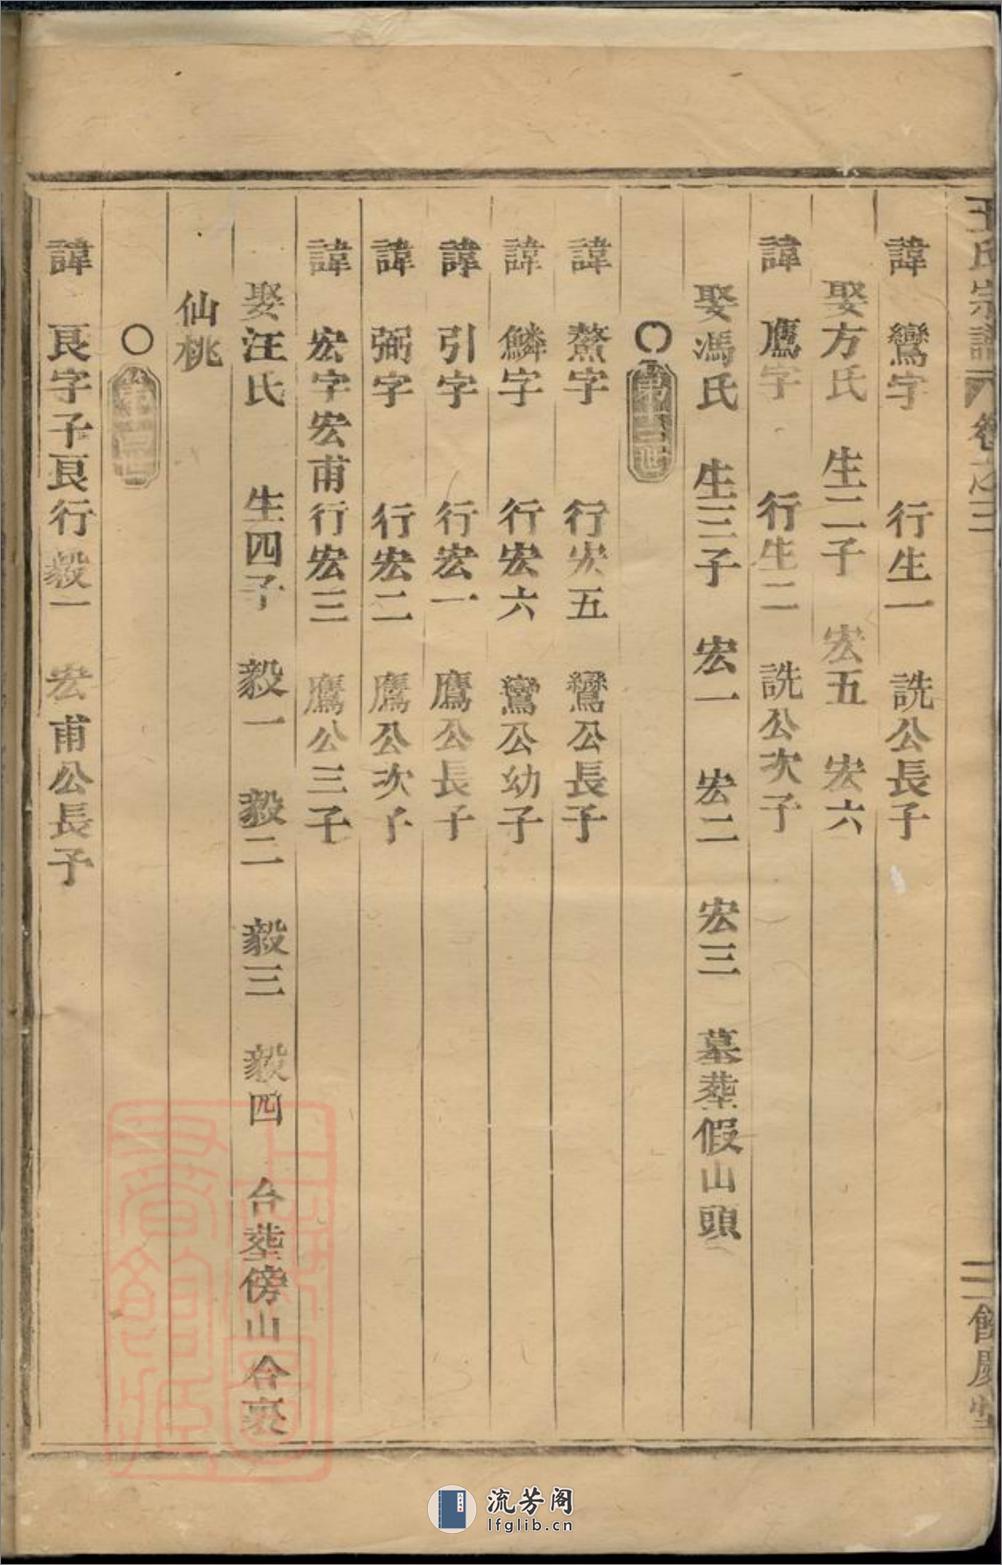 王氏宗譜 卷之三 二 餘慶堂
諱 鸞字 行生一 詵公長子
娶方氏 生二子 宏五 宏六
諱 鷹字 行生二 詵公次子
娶馮氏 生三子 宏一 宏二 宏三 墓葬假山頭
第十三世
諱 鰲字 行宏五 鸞公長子
諱 鱗字 行宏六 鸞公幼子
諱 引字 行宏一 鷹公長子
諱 弼字 行宏二 鷹公次子
諱 宏字宏甫行宏三 鷹公三子
娶汪氏 生四子 毅一 毅二 毅三 毅四 合葬傍山合裹
仙桃
第十四世
諱 良字子良行毅一 宏甫公長子
上海圖書館藏
流芳阁
lfglib.cn